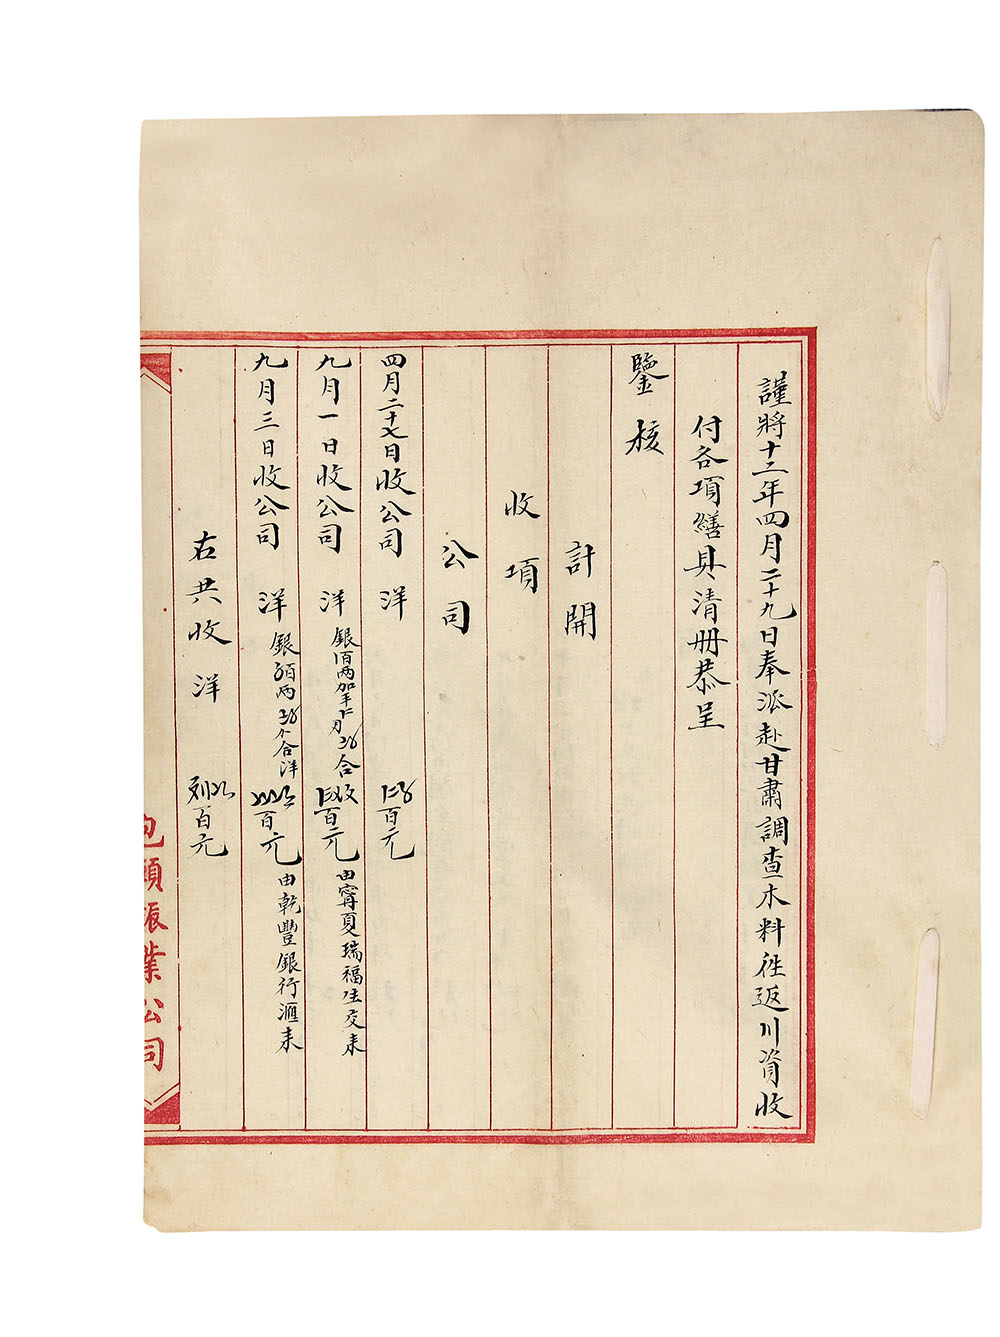 謹將十二年四月二十九日奉派赴甘肅調查木料徃返川資收
付各項繕具清册恭呈
鑒核
計開
收項
公司
四月二十七日收公司 洋 百元
九月一日收公司 洋 銀百兩 合 百元 由甯夏瑞福生交来
九月三日收公司 洋 銀 兩 合洋 百元 由乾豐銀行滙来
右共收洋 百元
包頭振業公司